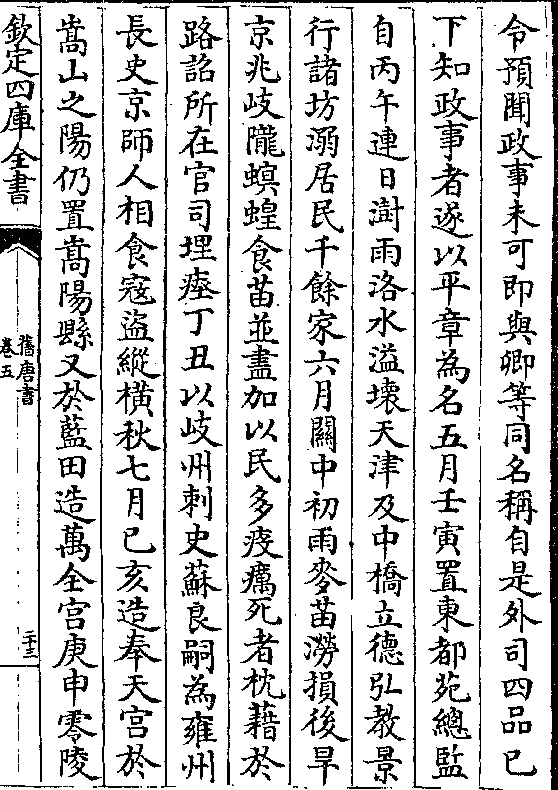 令預聞政事未可即與卿等同名稱自是外司四品已
下知政事者遂以平章為名五月壬寅置東都苑總監
自丙午連日澍雨洛水溢壊天津及中橋立德弘教景
行諸坊溺居民千餘家六月關中初雨麥苗澇損後旱
京兆岐隴螟蝗食苗並盡加以民多疫癘死者枕藉於
路詔所在官司埋瘞丁丑以岐州刺史蘇良嗣為雍州
長史京師人相食寇盜縱橫秋七月已亥造奉天宮於
嵩山之陽仍置嵩陽縣又於藍田造萬全宮庚申零陵
欽定四庫全書
舊唐書
卷五
二十三